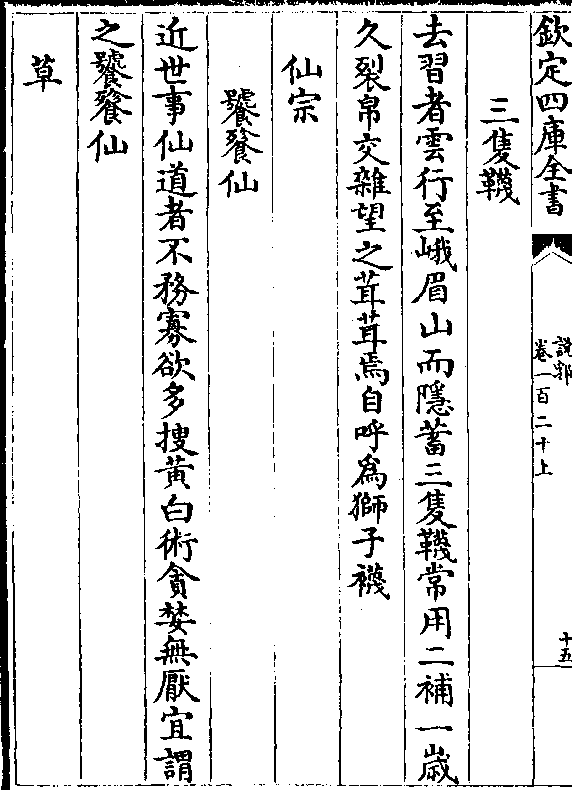 欽定四庫全書
說郛
卷一百二十上
十五
三隻韈
去習者雲行至峨眉山而隱蓄三隻韈常用二補一歲
久裂帛交雜望之茸茸焉自呼為獅子襪
仙宗
饕餮仙
近世事仙道者不務寡欲多搜黃白術貪婪無厭宜謂
之饕餮仙
草